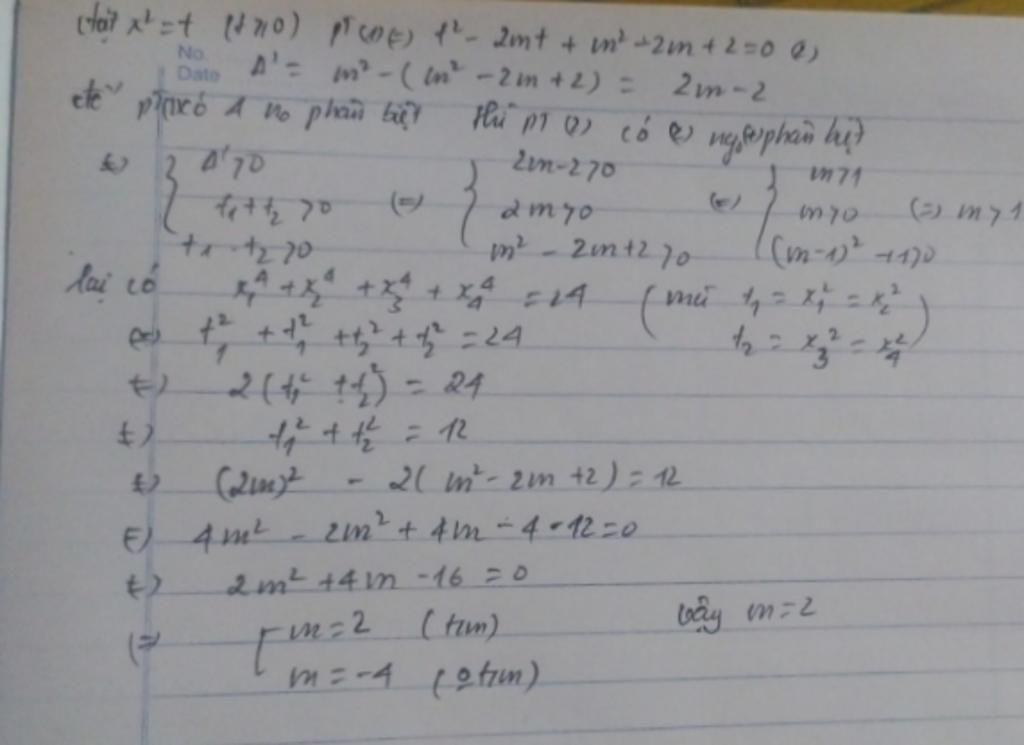 đặt x² = t (t ≥ 0) PT (1) (=) t² - 2mt + m² - 2m + 2 = 0 (2)
No.
Date Δ' = m² - (m² - 2m + 2) = 2m - 2
để PT(1) có 4 no phân biệt thì PT (2) có 2 ng phân biệt
(=) { Δ' > 0 (=) { 2m - 2 > 0 (=) { m > 1
t₁ + t₂ > 0 2m > 0 m > 0 (=) m > 1
t₁ . t₂ > 0 m² - 2m + 2 > 0 (m - 1)² + 1 > 0
lại có x₁⁴ + x₂⁴ + x₃⁴ + x₄⁴ = 24 (mà t₁ = x₁² = x₂²
t₂ = x₃² = x₄²)
(=) t₁² + t₁² + t₂² + t₂² = 24
(=) 2(t₁² + t₂²) = 24
(=) t₁² + t₂² = 12
(=) (2m)² - 2(m² - 2m + 2) = 12
(=) 4m² - 2m² + 4m - 4 - 12 = 0
(=) 2m² + 4m - 16 = 0
(=) [ m = 2 (tm) vậy m = 2
m = -4 (o tm)